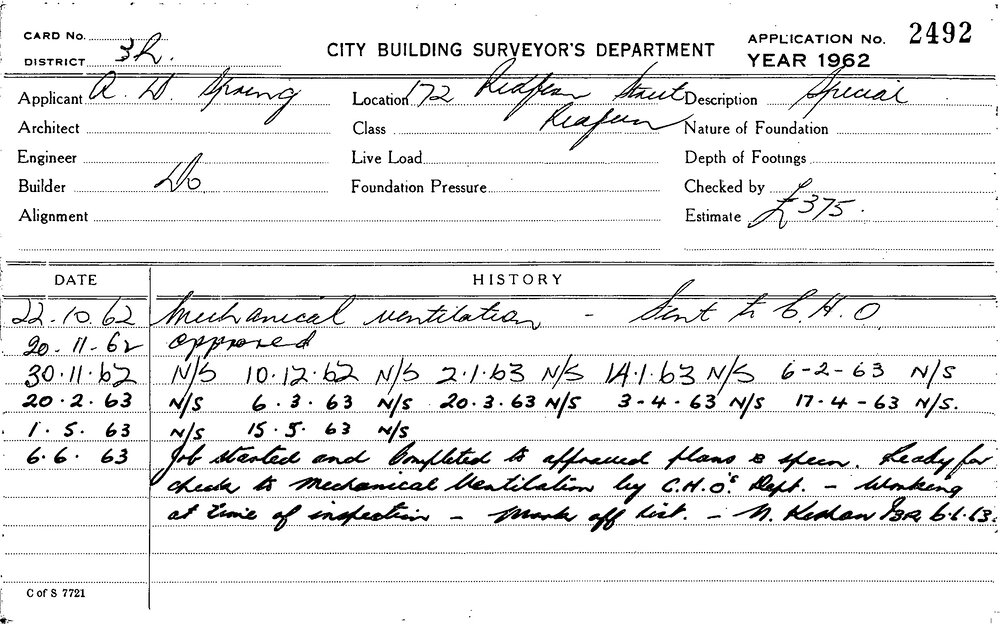 CARD No.
DISTRICT 3h.
CITY BUILDING SURVEYOR'S DEPARTMENT
APPLICATION No. 2492
YEAR 1962
Applicant A. W. Spring
Location 172 Redfern Street Redfern
Description Special
Architect
Class
Nature of Foundation
Engineer
Live Load
Depth of Footings
Builder Do
Foundation Pressure
Checked by
Alignment
Estimate £375.
DATE HISTORY
22.10.62 Mechanical ventilation - Sent to C.H.O.
20.11.62 approved
30.11.62 N/S 10.12.62 N/S 2.1.63 N/S 14.1.63 N/S 6-2-63 N/S
20.2.63 N/S 6.3.63 N/S 20.3.63 N/S 3-4-63 N/S 17.4-63 N/S.
1.5.63 N/S 15.5.63 N/S
6.6.63 Job started and Completed to approved plans & specn. Ready for
check to Mechanical Ventilation by C.H.O's Dept. - Working
at time of inspection - Mark off list. - N. 6.6.63.
C of S 7721